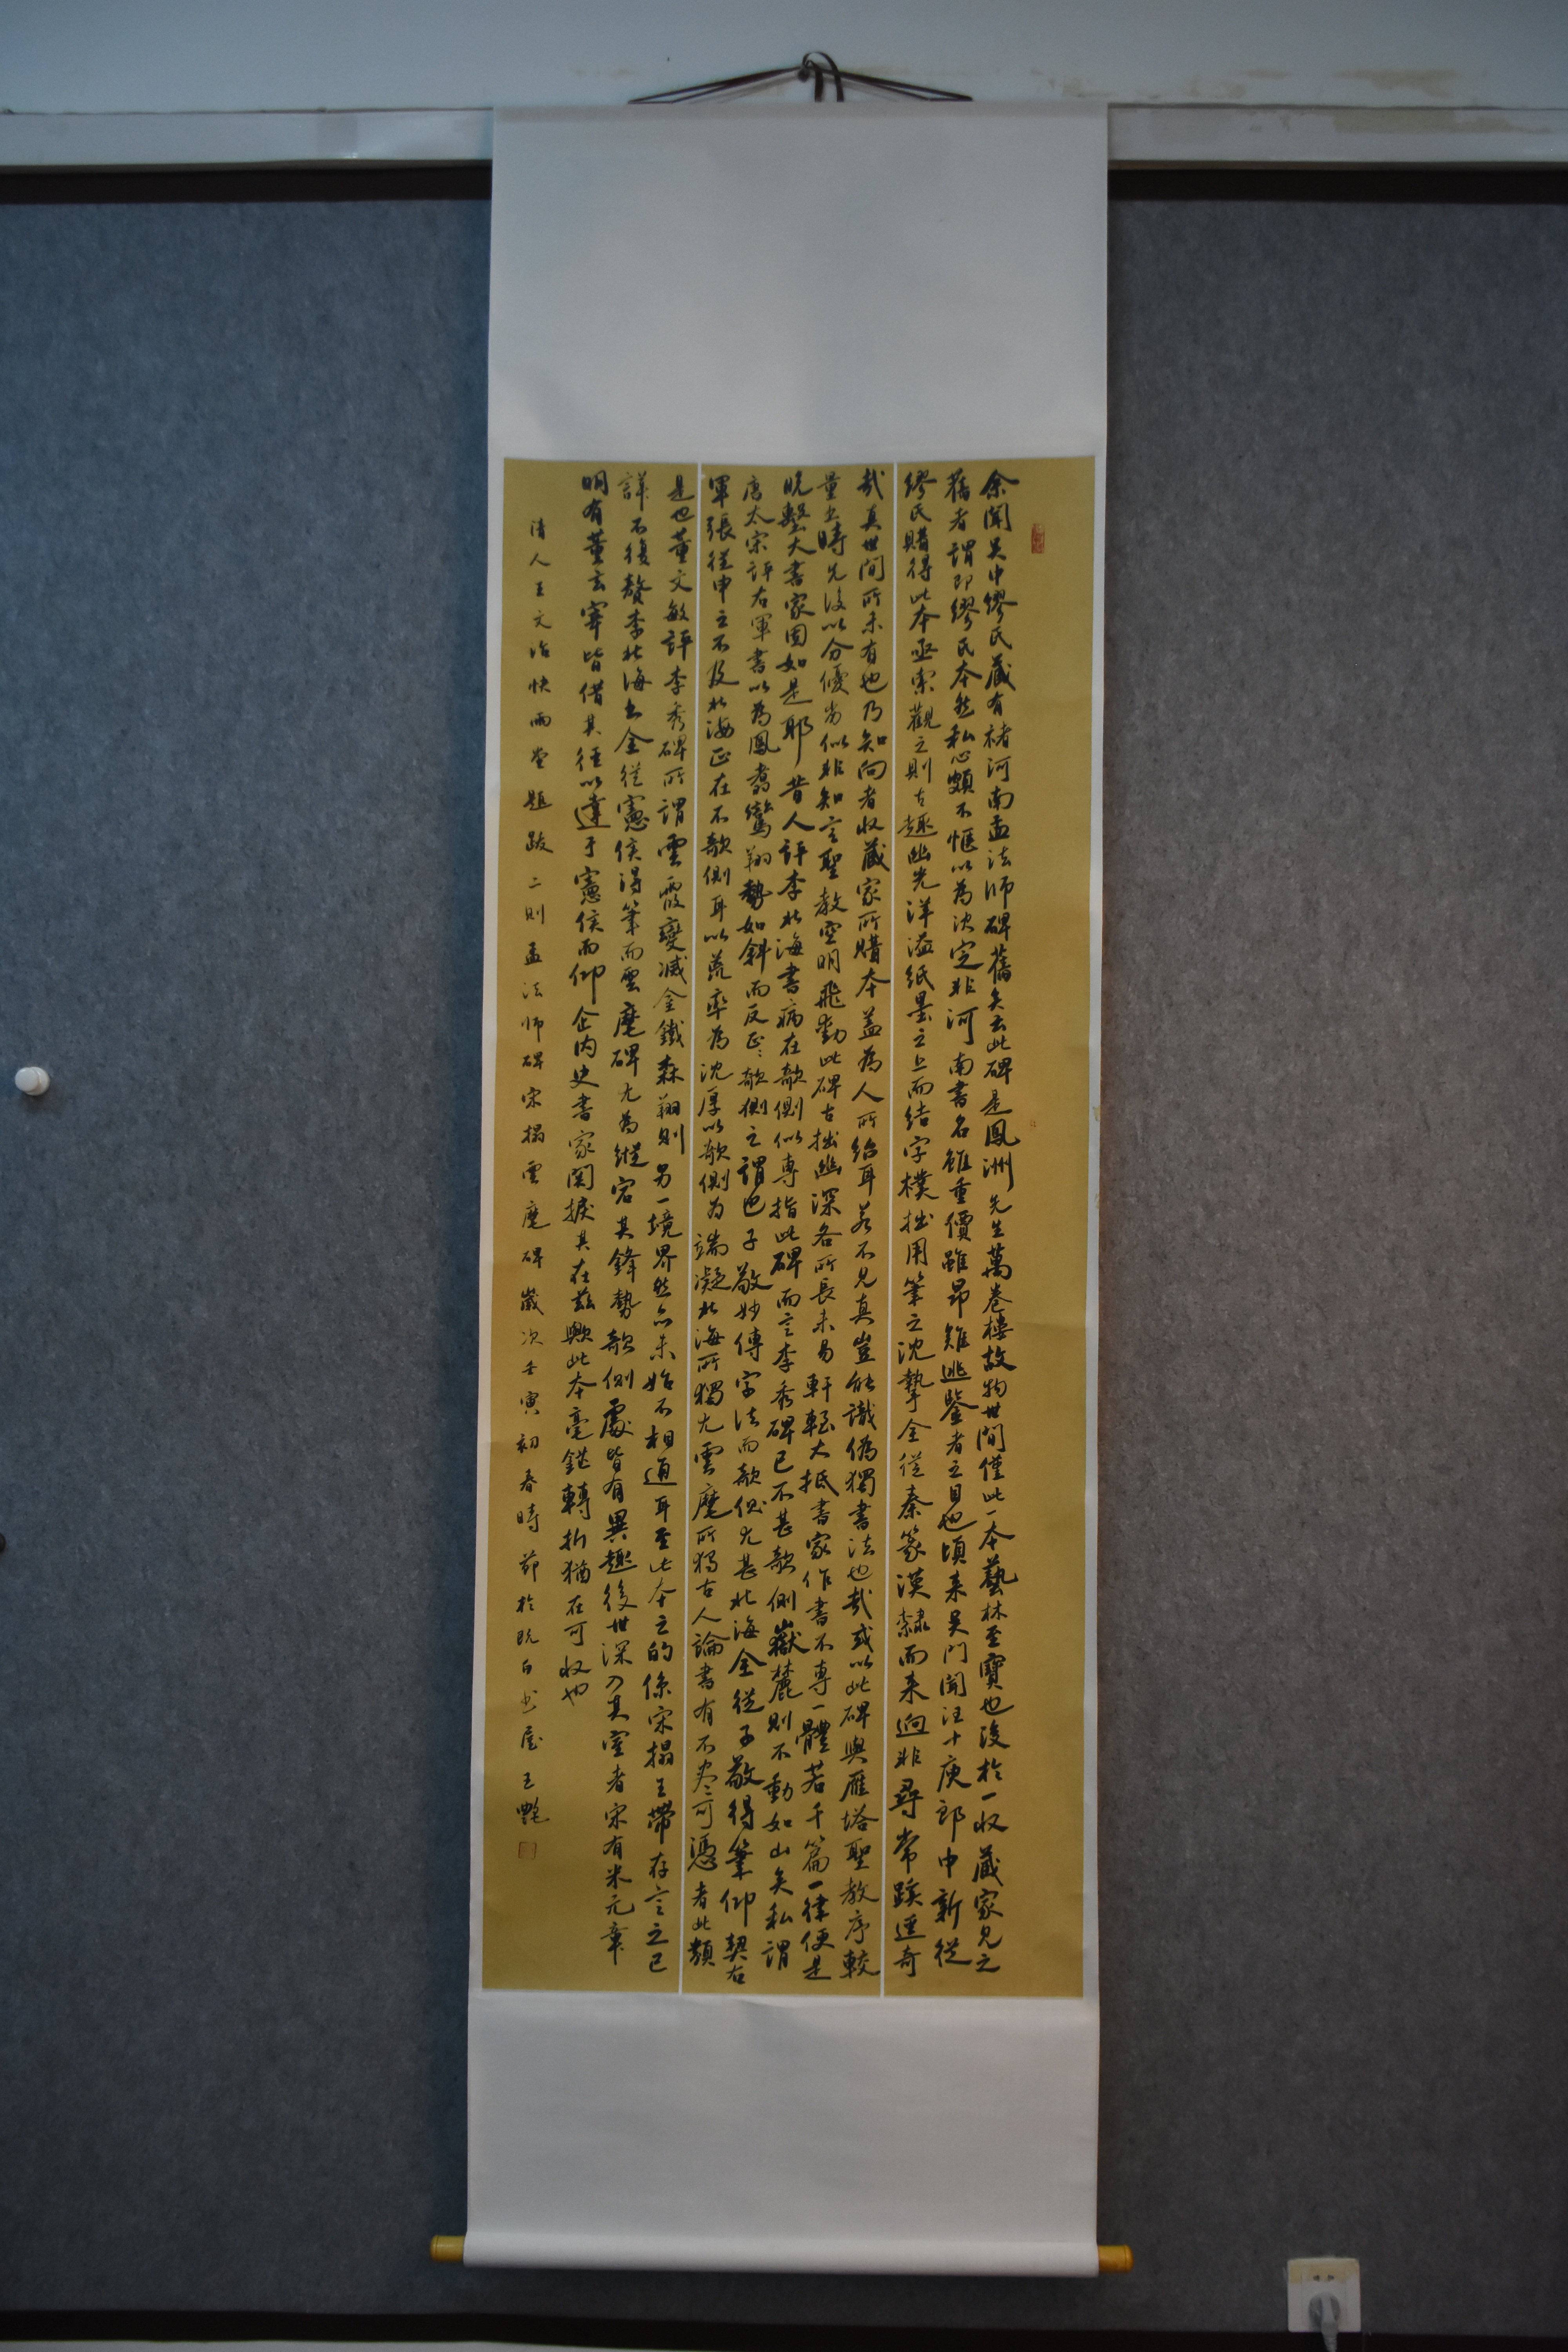 余聞吴中繆氏藏有褚河南孟法師碑舊矣云此碑是鳳洲先生萬卷樓故物世間僅此一本藝林至寶也後於一收藏家見之
舊者謂即繆氏本然私心頗不愜以為決定非河南書名雖重價雖昂難逃鑒者之目也頃来吴門聞汪十庚郎中新從
繆氏購得此本亟索觀之則古趣幽光洋溢紙墨之上而结字樸拙用筆之沈摯全從秦篆漢隸而来迥非尋常蹊逕奇
哉真世間所未有也乃知向者收藏家所購本蓋為人所紿耳若不見真豈能識偽獨書法也哉或以此碑與雁塔聖教序較
量書時先後以分優劣似非知言聖教空明飛動此碑古拙幽深各所長未易軒輊大抵書家作書不專一體若千篇一律便是
大書家固如是耶昔人評李北海書病在欹側似專指此碑而言李秀碑已不甚欹側嶽麓則不動如山矣私謂
唐太宗評右軍書以為鳳翥鸞翔勢如斜而反正正欹側之謂也子敬妙傳家法而欹側尤甚北海全從子敬得筆仰契右
軍張從申之不及北海正在不欹側耳以荒率為沈厚以欹側為端凝北海所獨尤雲麾所獨古人論書有不盡可憑者此類
是也董文敏評李秀碑所謂雲霞變滅金鐵森翔則另一境界然亦未始不相通耳至此本之的係宋搨王帶存言之已
詳不復贅李北海書全從憲侯得筆而雲麾碑尤為縱宕其鋒勢欹側處皆有異趣後世深入其室者宋有米元章
明有董玄宰皆借其徑以達于憲侯而仰企内史書家関捩其在兹歟此本毫鋩轉折猶在可收也
清人王文治快雨堂題跋二則孟法師碑宋搨雲麾碑歲次壬寅初春時節於既白书屋王艷